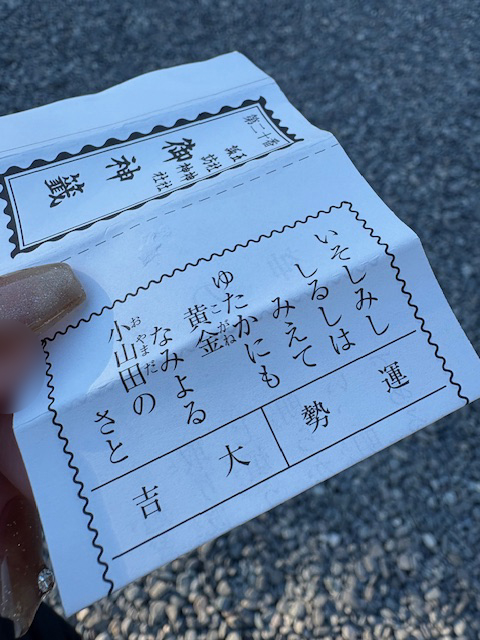 第二十番
御神籤
いそしみし
しるしは
みえて
ゆたかにも
黄金
こがね
なみよる
小山田の
おやまだ
さと
運勢
大吉